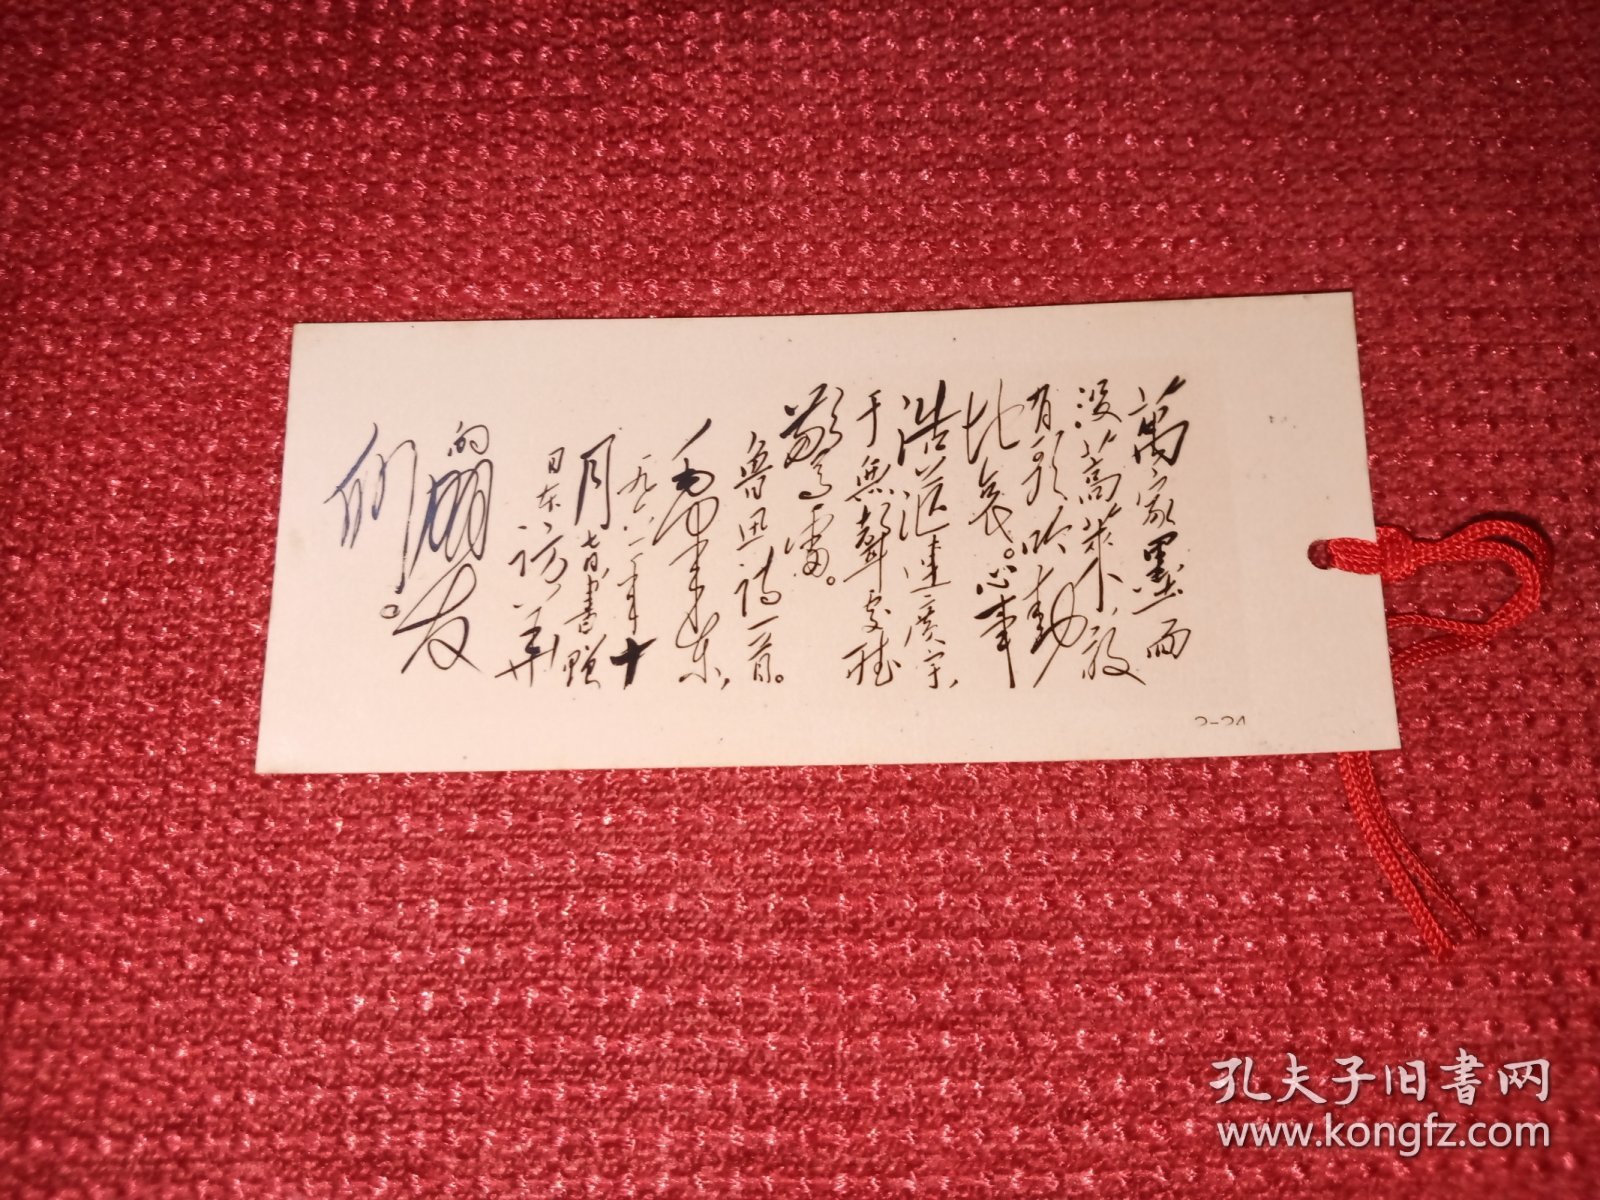 萬家墨面
没蒿莱,敢
有歌吟動
地哀。心事
浩茫連廣宇,
于無聲處聽
驚雷。
魯迅詩一首。
毛澤东,
一九六一年十
月七日書贈
日本访華
的朋友
们。
孔夫子旧書网
www.kongfz.com